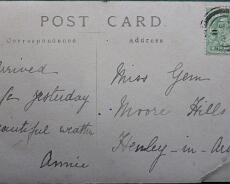 POST CARD
Correspondence
Address
arrived
yesterday
beautiful
Annie
Miss Gem
Moore Hills
Henley-in-Ar